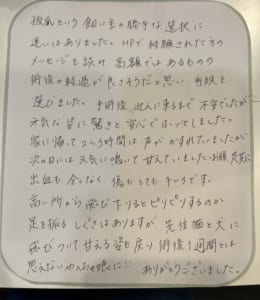 抜爪という飼い主の勝手な選択に
迷いはありました。HPで経験された方の
メッセージを読み 高額ではあるものの
術後の経過が良さそうだと思い、手段を
選びました。手術後 迎えに来るまで不安でしたが
元気な姿に驚きと安心でほっとしました。
家に帰って2〜3時間は声がかすれていましたが
次の日には元気に鳴いて甘えていました
出血も全くなく 傷もとてもキレイです。
高い所から飛び下りるとピリピリするのか
足を振るしぐさはありますが 先住猫と犬に
飛びついて甘える姿も戻り 術後1週間とは
思えないやんちゃ娘くに!!
ありがとうございました。